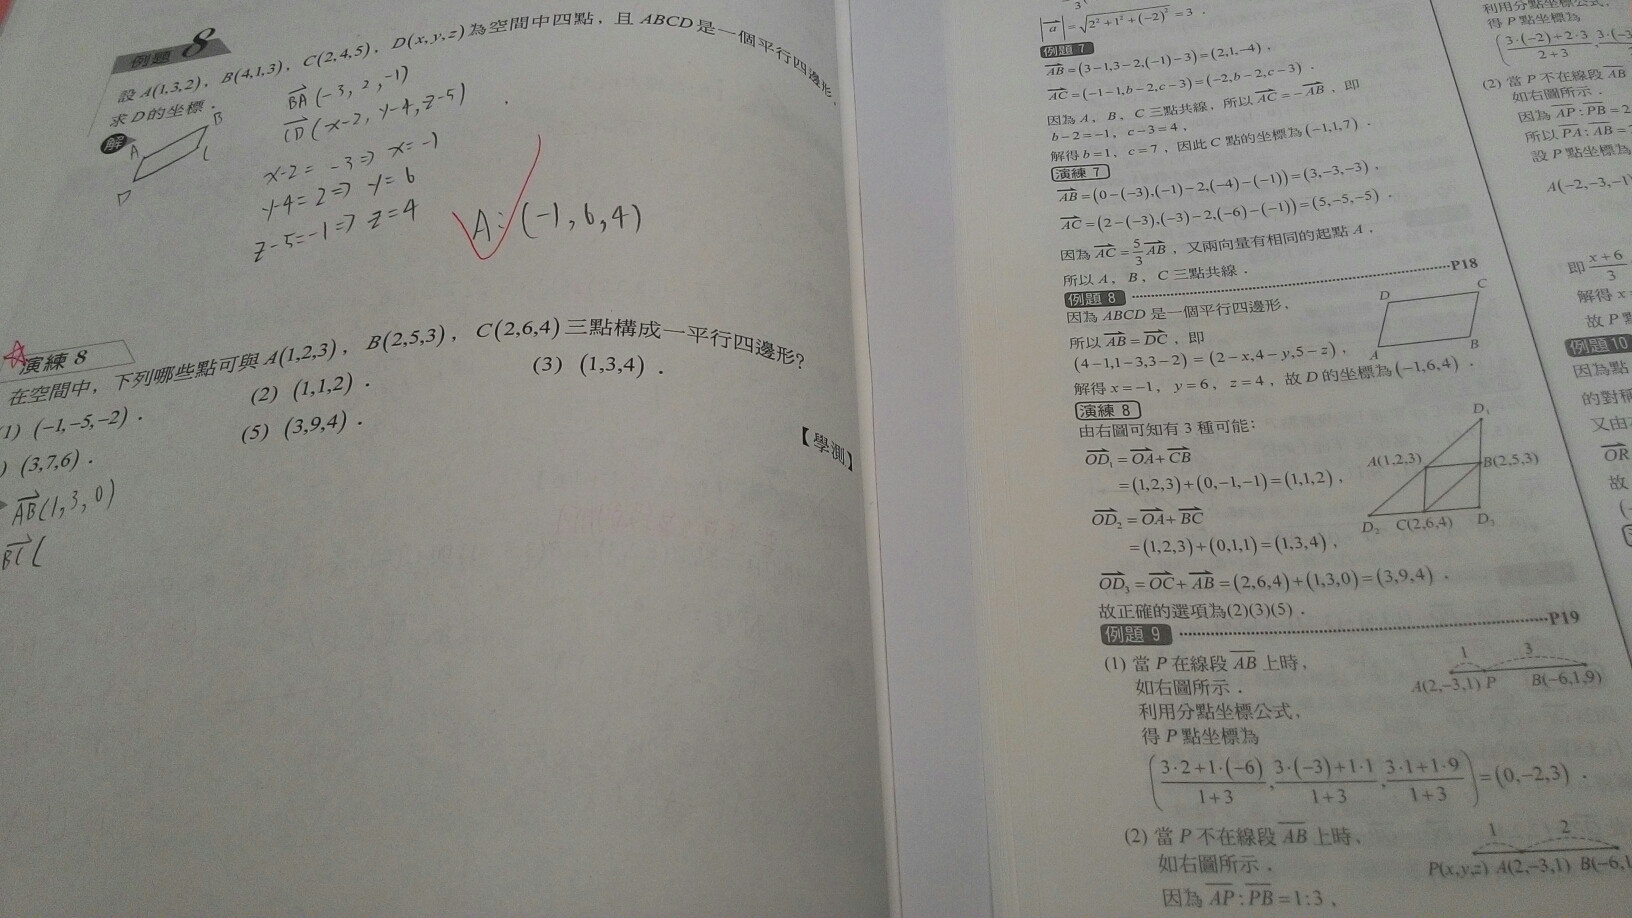 例題 8
設 A(1,3,2)，B(4,1,3)，C(2,4,5)，D(x,y,z) 為空間中四點，且 ABCD 是一個平行四邊形，
求 D 的坐標．
解
A B
D C
BA (-3, 2, -1)
CD (x-2, y-4, z-5)
x-2 = -3 ⇒ x = -1
y-4 = 2 ⇒ y = 6
z-5 = -1 ⇒ z = 4
A: (-1, 6, 4)
演練 8
在空間中，下列哪些點可與 A(1,2,3)，B(2,5,3)，C(2,6,4) 三點構成一平行四邊形？
1) (-1,-5,-2)．
(2) (1,1,2)．
(3) (1,3,4)．
) (3,7,6)．
(5) (3,9,4)．
【學測】
AB (1, 3, 0)
BC (
|a| = √(2²+1²+(-2)²) = 3．
例題 7
AB = (3-1,3-2,(-1)-3) = (2,1,-4)，
AC = (-1-1,b-2,c-3) = (-2,b-2,c-3)．
因為 A，B，C 三點共線，所以 AC = -AB，即
b-2=-1，c-3=4，
解得 b=1，c=7，因此 C 點的坐標為 (-1,1,7)．
演練 7
AB = (0-(-3),(-1)-2,(-4)-(-1)) = (3,-3,-3)，
AC = (2-(-3),(-3)-2,(-6)-(-1)) = (5,-5,-5)．
因為 AC = 5/3 AB，又兩向量有相同的起點 A，
所以 A，B，C 三點共線．
例題 8 P18
因為 ABCD 是一個平行四邊形，
所以 AB = DC，即
(4-1,1-3,3-2) = (2-x,4-y,5-z)，
解得 x=-1，y=6，z=4，故 D 的坐標為 (-1,6,4)．
D C
A B
演練 8
由右圖可知有 3 種可能：
OD₁ = OA + CB
= (1,2,3)+(0,-1,-1) = (1,1,2)，
OD₂ = OA + BC
= (1,2,3)+(0,1,1) = (1,3,4)，
OD₃ = OC + AB = (2,6,4)+(1,3,0) = (3,9,4)．
故正確的選項為(2)(3)(5)．
D₁
A(1,2,3) B(2,5,3)
D₂ C(2,6,4) D₃
例題 9 P19
(1) 當 P 在線段 AB 上時，
如右圖所示．
利用分點坐標公式，
得 P 點坐標為
((3·2+1·(-6))/(1+3), (3·(-3)+1·1)/(1+3), (3·1+1·9)/(1+3)) = (0,-2,3)．
1 3
A(2,-3,1) P B(-6,1,9)
(2) 當 P 不在線段 AB 上時，
如右圖所示．
因為 AP : PB = 1:3，
1 2
P(x,y,z) A(2,-3,1) B(-6,1
利用分點坐標公式，
得 P 點坐標為
(3·(-2)+2·3)/(2+3)
(2) 當 P 不在線段 AB
如右圖所示．
因為 AP : PB = 2
所以 PA : AB =
設 P 點坐標為
A(-2,-3,-1)
即 (x+6)/3
解得 x
故 P 點
例題 10
因為點
的對稱
又由
OR
故